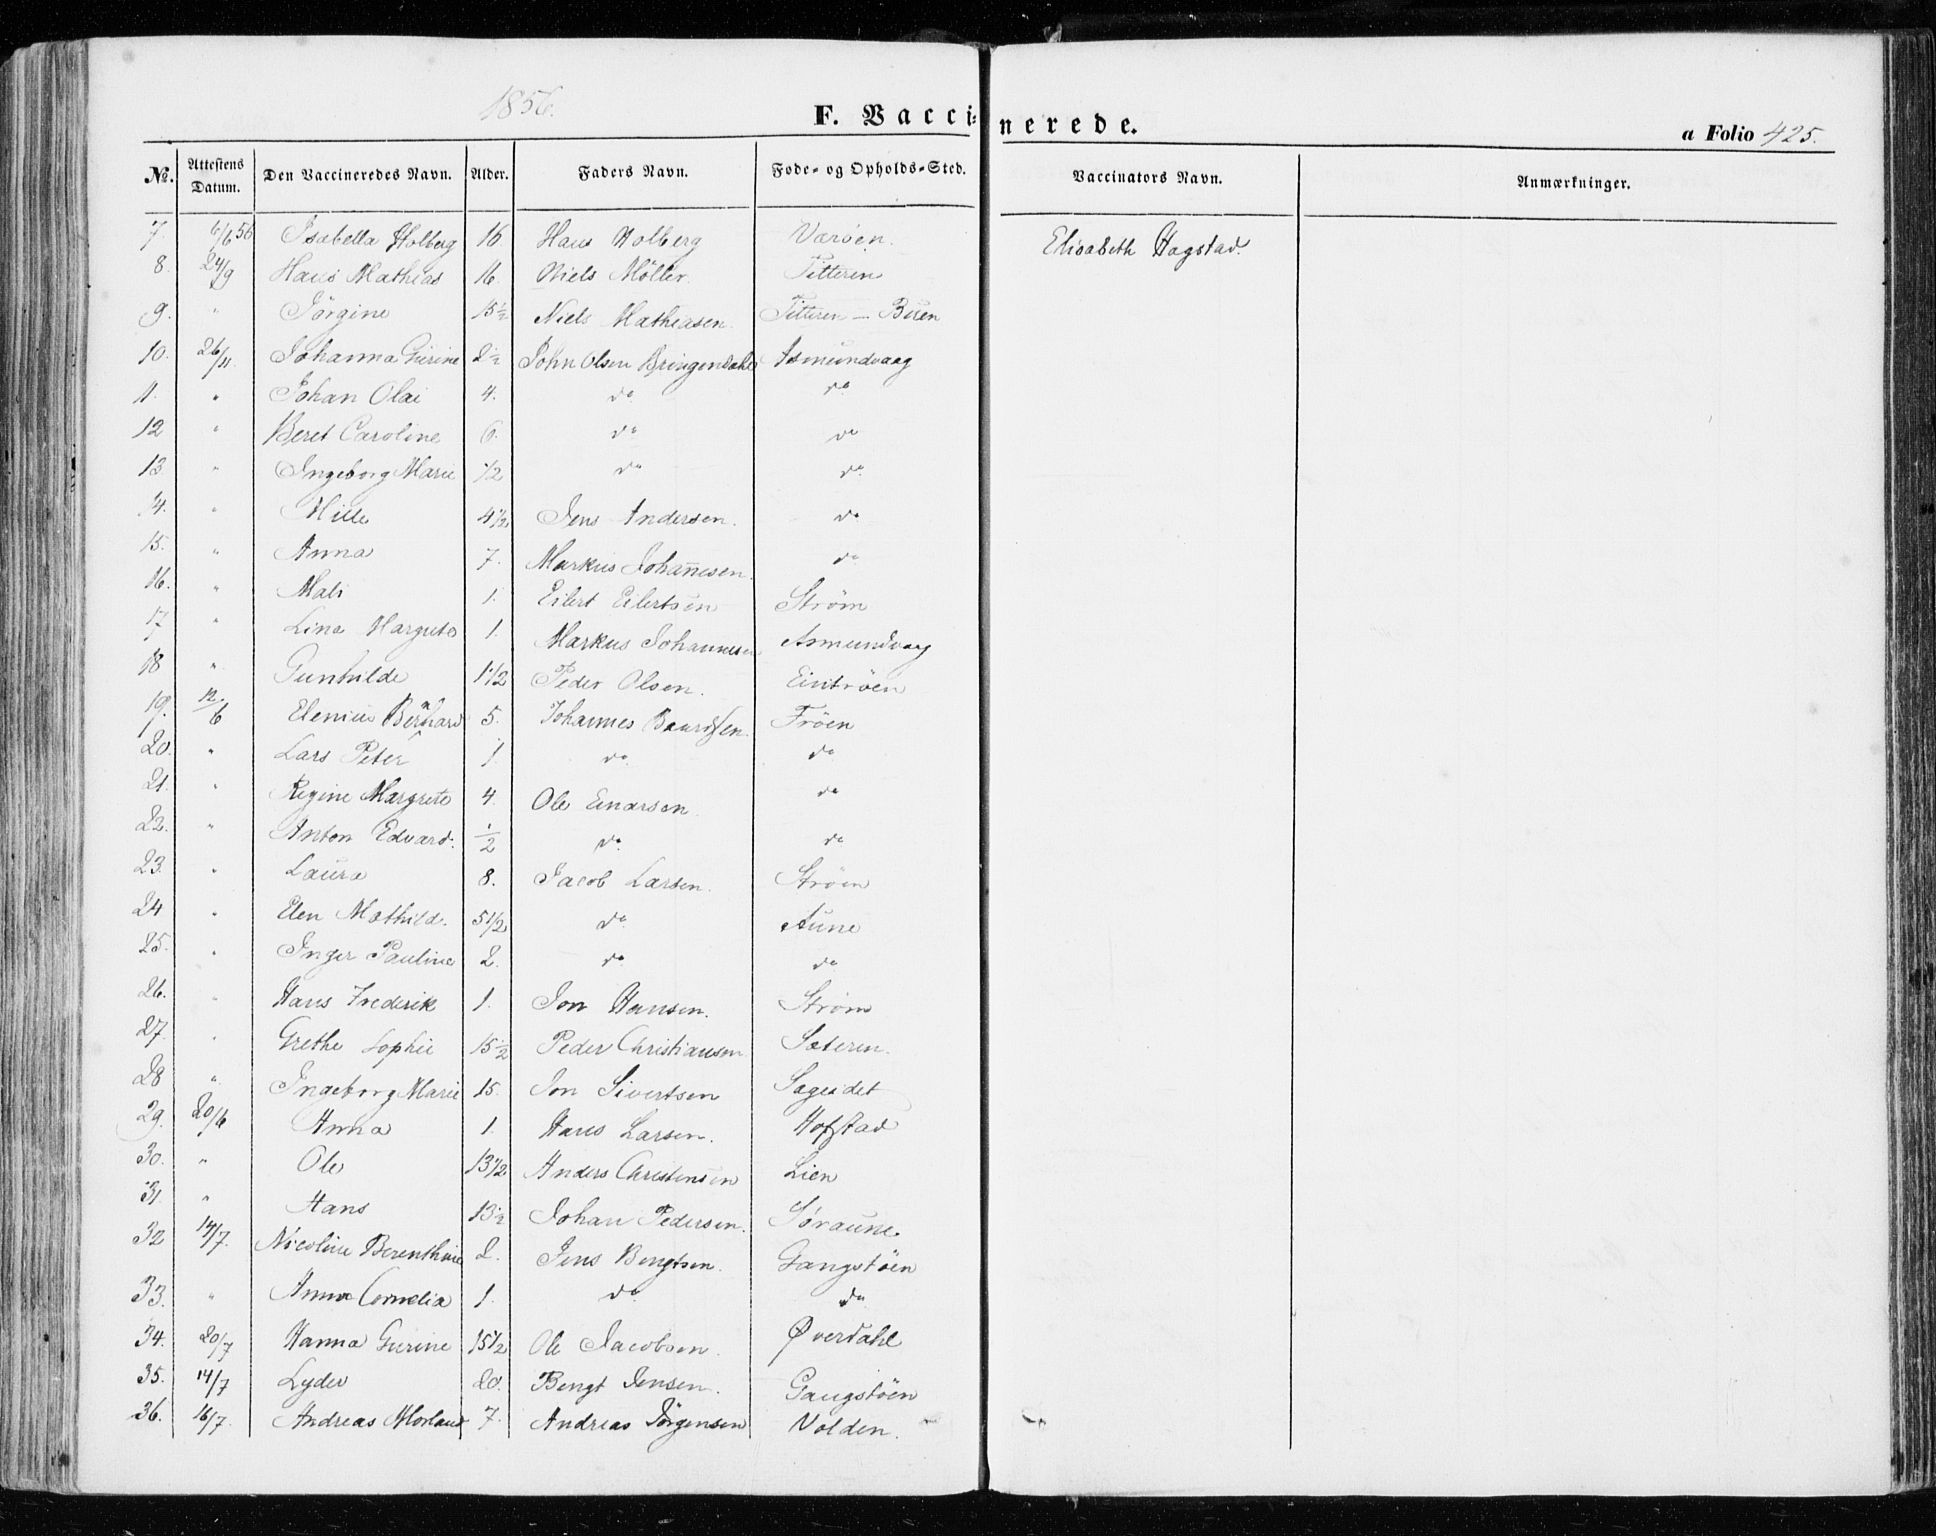 1856.
F. Vaccinerede.
a Folio 425.
No. Attestens Datum. Den Vaccineredes Navn. Alder. Faders Navn. Føde- og Opholds-Sted. Vaccinators Navn. Anmærkninger.
7. 6/6 56 Isabella Holberg 16 Hans Holberg Værøen. Elisabeth Hagstad.
8. 24/9 Hans Mathias 16. Niels Möller. Titteren
9. " Jörgine 15 1/2 Niels Mathiasen. Titteren - Buen
10. 26/11 Johanna Gurine 2 1/2 John Olsen Bringendahl Asmundvaag
11. " Johan Olai 4. do do
12 " Beret Caroline 6. do do
13 " Ingeborg Marie 1/2 do do
14. " Mille 4 1/2 Jens Andersen. do
15. " Anna 7. Markus Johannesen. do
16. " Mali 1. Eilert Eilertsen Strøm
17 " Line Margrete 1. Markus Johannesen Asmundvaag
18 " Gunhilde 1 1/2 Peder Olsen. Eintröen
19. 12/6 Elenius Bernhard 5. Johannes Baardsen. Fröen
20. " Lars Peter 1 do do
21. " Regine Margrete 4. Ole Einarsen do
22. " Anton Edvard. 1/2 do do
23. " Laura 8. Jacob Larsen. Ströen
24 " Elen Mathild. 5 1/2 do Aune
25. " Inger Pauline 2. do do
26. " Hans Frederik 1. Jon Hansen. Strøm
27. " Grethe Sophie 15 1/2 Peder Christiansen Sæteren.
28 " Ingeborg Marie 15. Jon Sivertsen Sageidet
29. 20/6 Anna 1. Hans Larsen. Hofstad
30. " Ole 13 1/2 Anders Christensen Lien
31. " Hans 13 1/2 Johan Pedersen. Söraune.
32 14/7. Nicoline Berenthine 2. Jens Bengtsen. Gangstöen
33. " Anna Cornelia 1. do do
34. 20/7 Hanna Gurine 15 1/2 Ole Jacobsen. Øverdahl
35. 14/7 Lyder 20. Bengt Jensen. Gangstöen
36. 16/7. Andreas Morlaus 7. Andreas Jörgensen Volden.